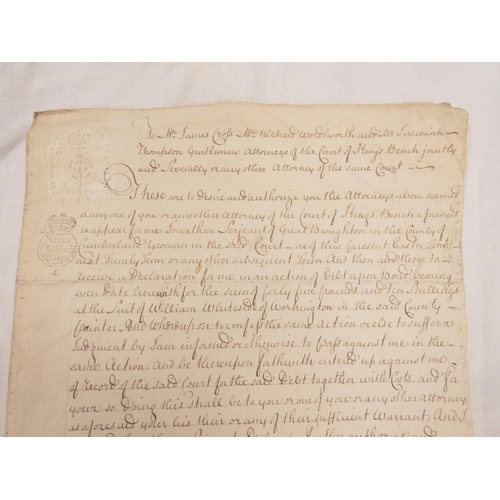 To Mr. James Cross Mr. Richard Wordsworth and Mr Jeremiah
Thompson Gentlemen Attorneys of the Court of Kings Bench joyntly
and Severally or any other Attorney of the same Court
These are to desire and authorize you the Attorneys above named
or any one of you or any other Attorney of the Court of Kings Bench aforesaid
to appear for me Jonathan Serjeant of Great Broughton in the County of
Cumberland Yeoman in the said Court as of this present Easter Term
next Trinity Term or any other subsequent Term And then and there to
Receive a Declaration for me in an action of Debt upon Bond bearing
even Date herewith for the sum of forty five pounds and ten Shillings
at the Suit of William Whiteside of Workington in the said County
painter And Whereupon to confess the same Action or else to suffer a
Judgment by I am informed or otherwise to pass against me in the
same Action: and be thereupon forthwith entred up against me
of Record of the said Court for the said Debt together with Costs, and for
your so Doing this Shall be to you or one of you or any other Attorney
as aforesaid your his their or any of them sufficient Warrant: And I